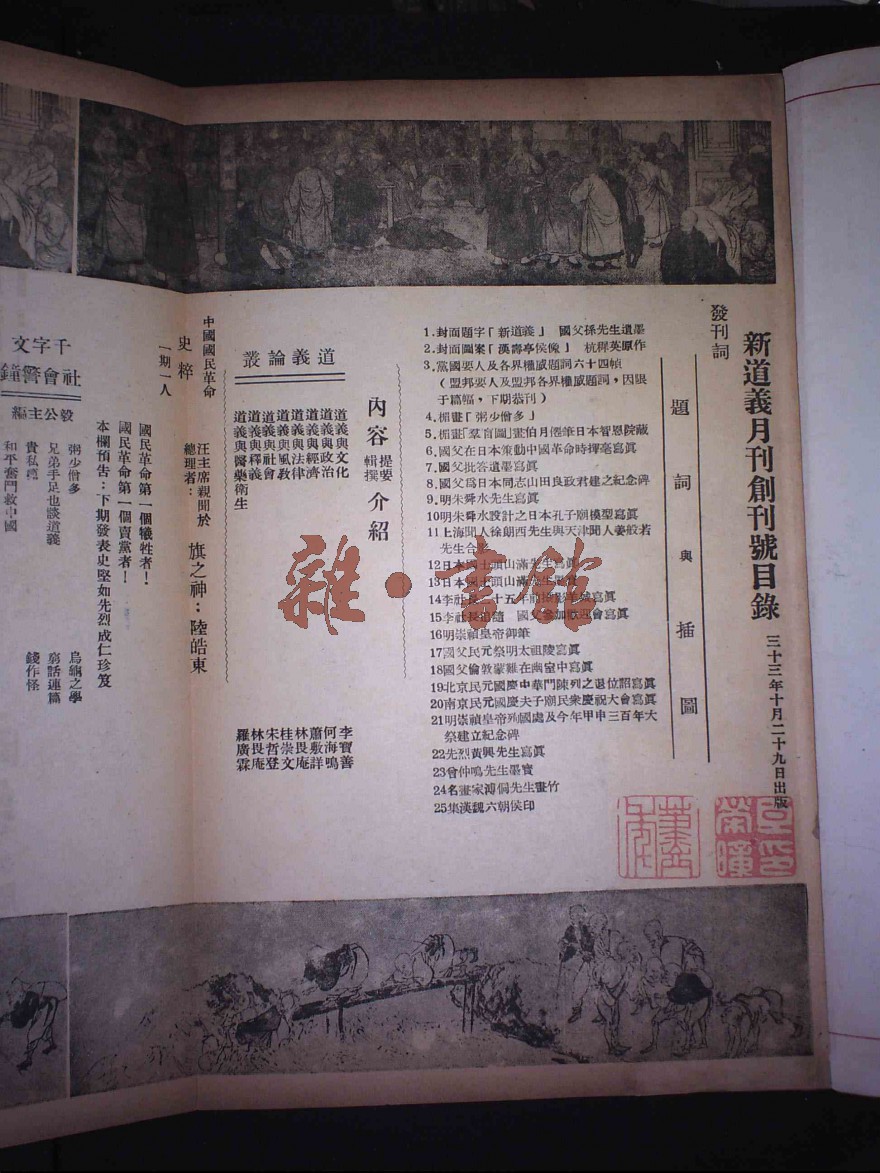 新道義月刊創刊號目錄
三十三年十月二十九日出版
發刊詞
題詞與插圖
1.封面題字「新道義」 國父孫先生遺墨
2.封面圖案「漢壽亭侯像」 杭穉英原作
3.黨國要人及各界權威題詞六十四幀
(盟邦要人及盟邦各界權威題詞,因限
于篇幅,下期恭刊)
4.楣畫「粥少僧多」
5.楣畫「羣盲圖」畫伯月僊筆日本智恩院藏
6.國父在日本策動中國革命時揮毫寫眞
7.國父批答遺墨寫眞
8.國父爲日本同志山田良政君建之紀念碑
9.明朱舜水先生寫眞
10明朱舜水設計之日本孔子廟模型寫眞
11上海聞人徐朗西先生與天津聞人姜般若
先生合影
12日本國士頭山滿先生寫眞
13日本國士頭山滿先生墨寶
14李社長二十五年前
寫眞
15李社長追隨 國父參加歡迎會寫眞
16明崇禎皇帝御筆
17國父民元祭明太祖陵寫眞
18國父倫敦蒙難在幽室中寫眞
19北京民元國慶中華門陳列之退位詔寫眞
20南京民元國慶夫子廟民衆慶祝大會寫眞
21明崇禎皇帝殉國處及今年甲申三百年大
祭建立紀念碑
22先烈黃興先生寫眞
23曾仲鳴先生墨寶
24名畫家溥侗先生畫竹
25集漢魏六朝侯印
內容提要輯撰介紹
道義論叢
道義與文化 李寶善
道義與政治 何海鳴
道義與經濟 蕭敷詳
道義與法律 林畏庵
道義與風教 桂崇文
道義與社會 宋哲登
道義與釋義 林畏庵
道義與醫藥衛生 羅廣霖
中國國民革命
史粹
一期一人
汪主席親聞於
總理者:
旗之神:陸皓東
國民革命第一個犧牲者!
國民革命第一個賣黨者!
本欄預告:下期發表史堅如先烈成仁珍笈
千字文
社會警鐘
毅公主編
粥少僧多 烏鋼之學
兄弟手足也談道義 窮話連篇
貴私德 錢作怪
和平奮鬥救中國
雜·書館